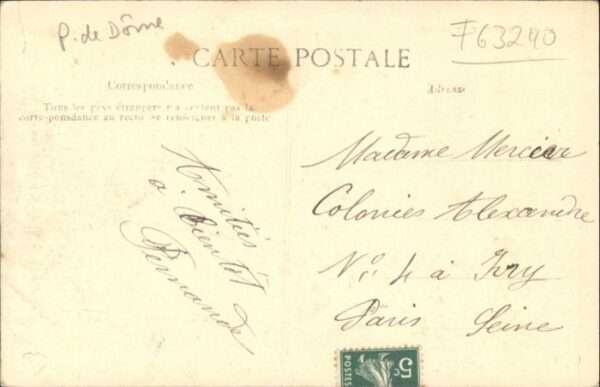 P. de Dôme
F63240
CARTE POSTALE
Correspondance
Adresse
Tous les pays étrangers n'acceptent pas la
correspondance au recto se renseigner à la poste
Amitiés
a bientôt
Fernande
Madame Mercier
Colonies Alexandre
No 4 à Ivry
Paris Seine
5c